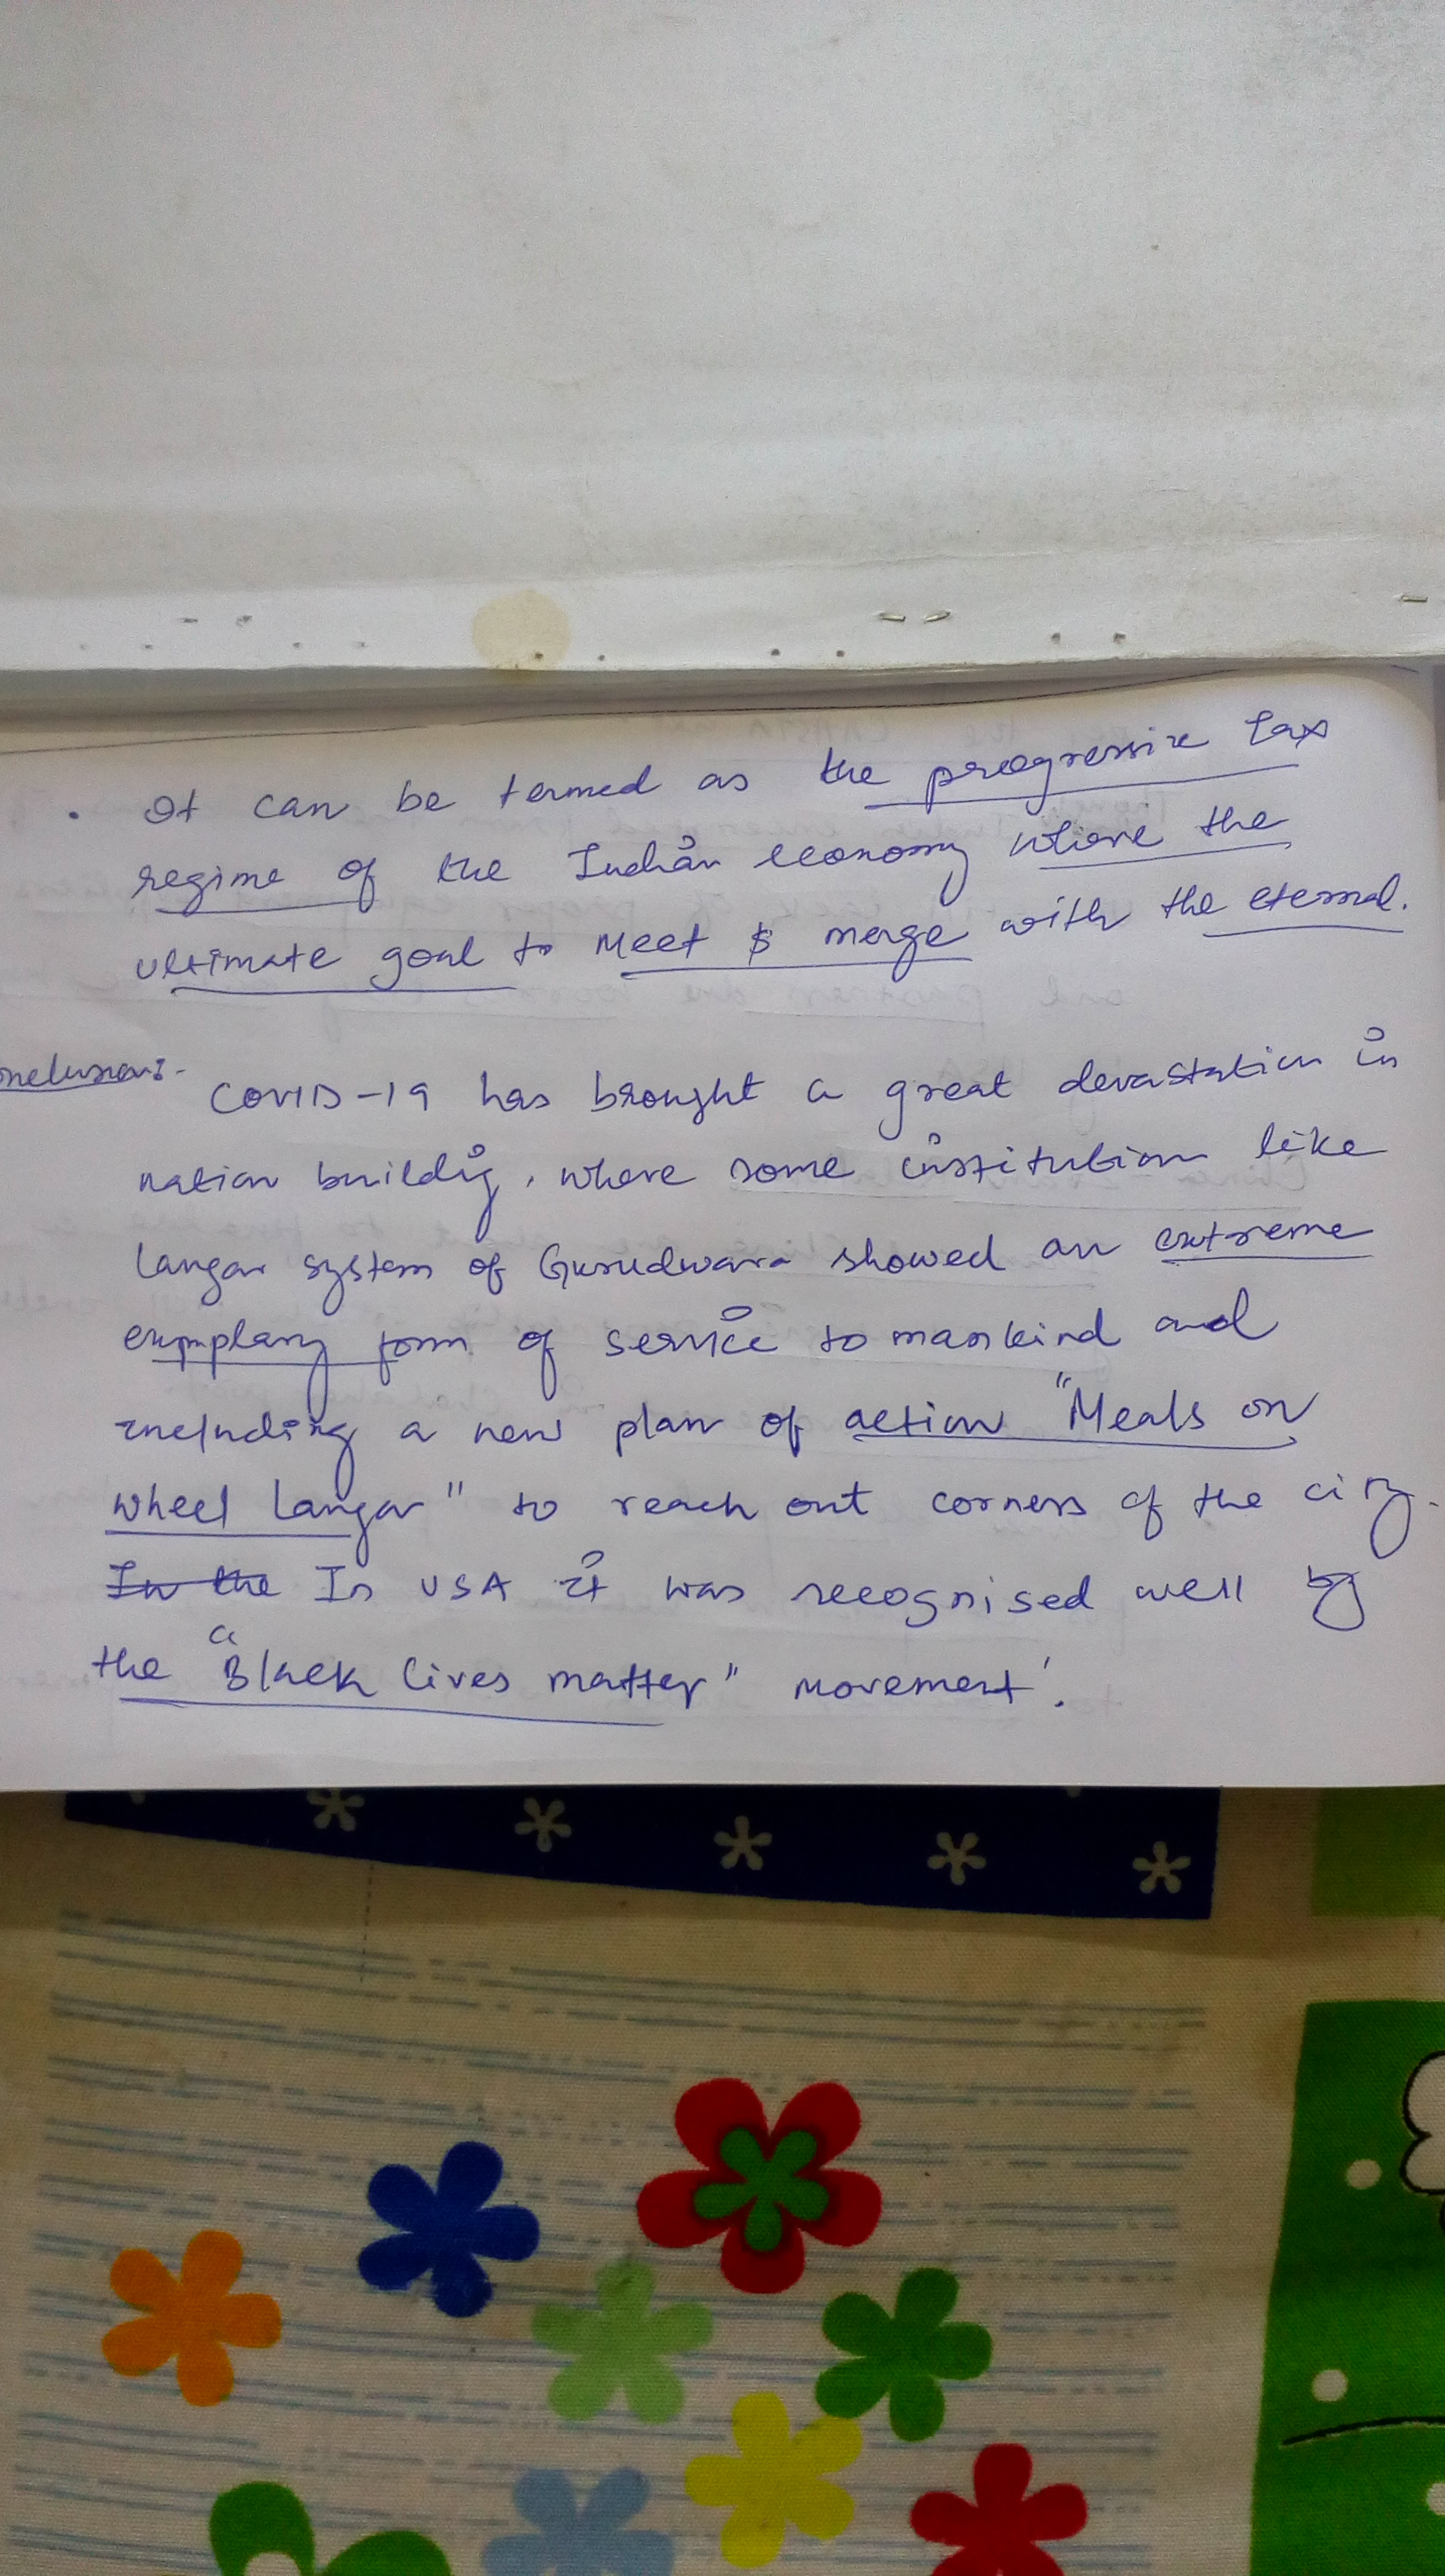 • It can be termed as the progressive tax
regime of the Indian economy where the
ultimate goal to meet & merge with the eternal.
onclusion:-
COVID-19 has brought a great devastation in
nation buildig, where some institution like
langar system of Gurudwara showed an extreme
exmplary form of service to mankind and
including a new plan of action "Meals on
wheel Langar" to reach out corners of the city.
In the In USA it was recognised well by
the "Black lives matter" movement.